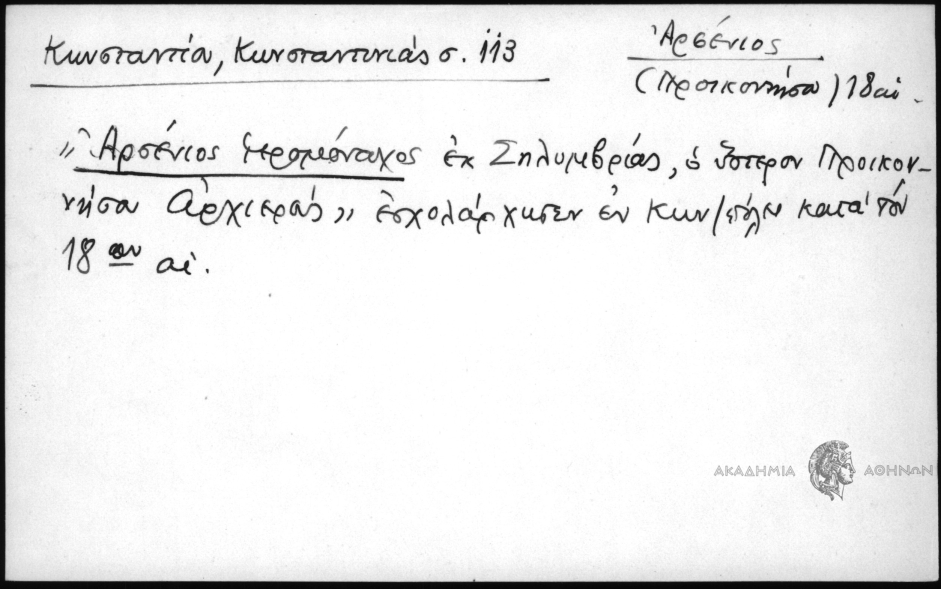 Κωνσταντίου, Κωνσταντινιάς σ. 113
Ἀρσένιος
(Προικοννήσου) 18 αι.
"Ἀρσένιος ἱερομόναχος ἐκ Σηλυμβρίας, ὁ ὕστερον Προικον-
νήσου Ἀρχιερεύς" ἐσχολάρχησεν ἐν Κων/πόλει κατά τόν
18ον αι.
ΑΚΑΔΗΜΙΑ ΑΘΗΝΩΝ